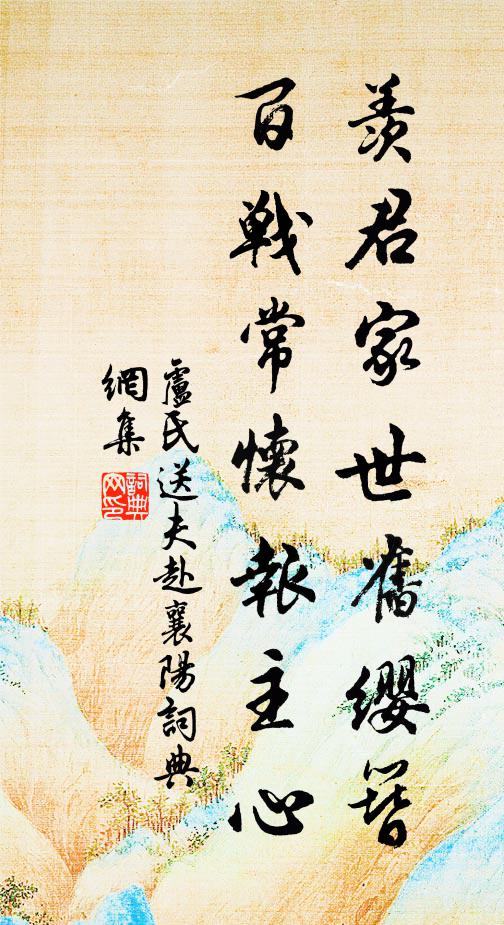 羨君家世舊纓簪
百戰常懷報主心
盧氏送夫赴襄陽詞典
網集
詞典
网印